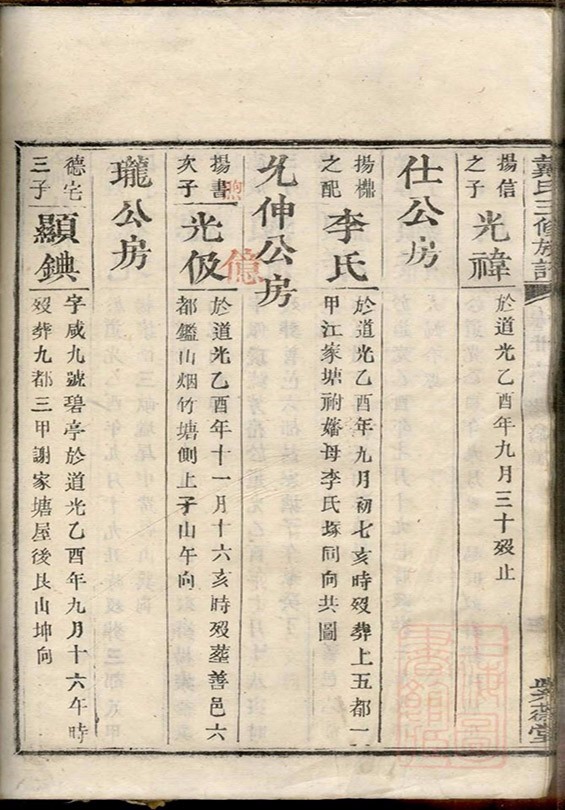 戴氏三修族譜
紫荷堂
揚信
之子
光禕
於道光乙酉年九月三十歿止
仕公房
之配
李氏
於道光乙酉年九月初七亥時歿葬上五都一
甲江家塘祔嬸母李氏塚同向共圖
允伸公房
億
揚書
次子
光伋
於道光乙酉年十一月十六亥時歿塟善邑六
都鑑山烟竹塘側上子山午向
瓏公房
德宅
三子
顯錪
字咸九號碧亭於道光乙酉年九月十六午時
歿葬九都三甲謝家塘屋後艮山坤向